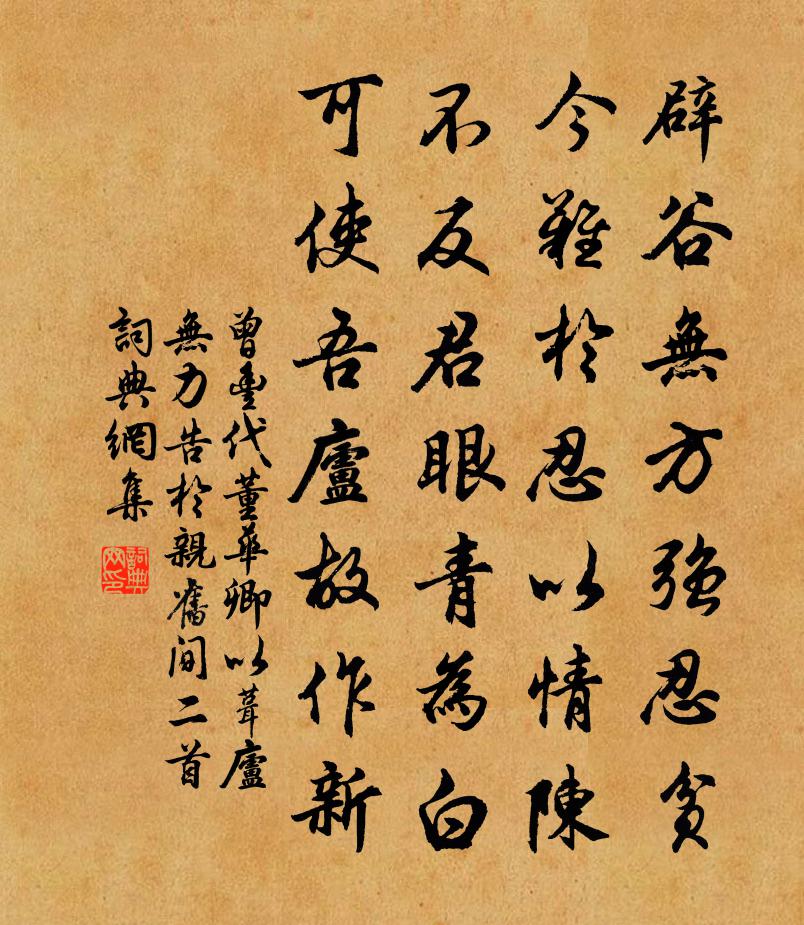 辟谷無方強忍貧
今難於忍以情陳
不反君眼青為白
可使吾廬故作新
曾豊代董華卿以葺廬
無力告於親舊間二首
詞典網集
詞典網印